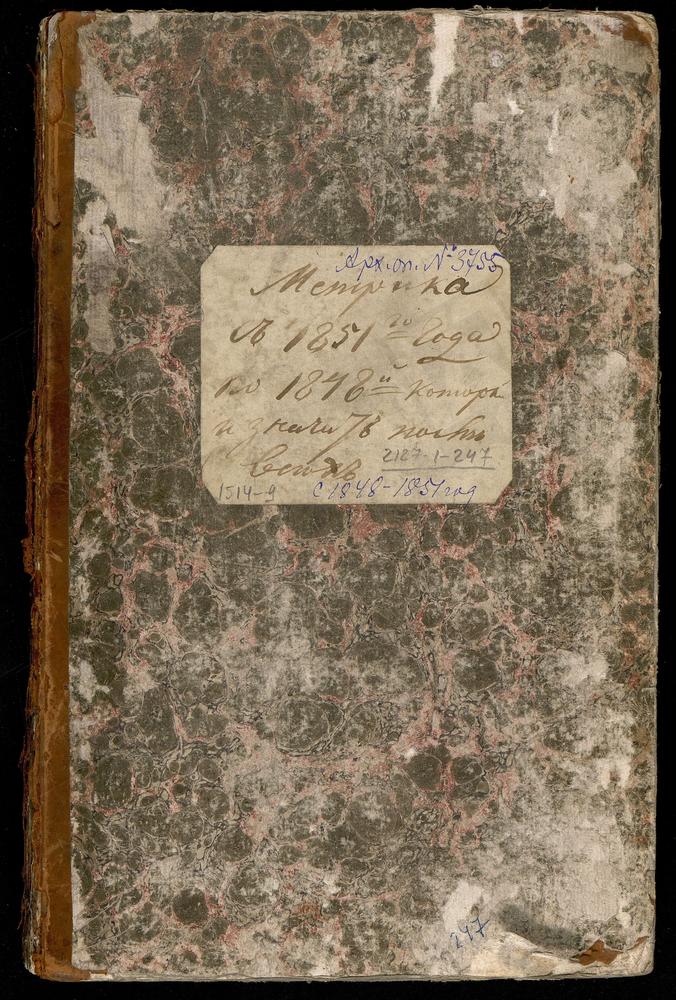 Арх. оп. № 3755
Метрика
съ 1851го Года
по 1848й Котора
и значитъ
2127-1-247
1514-9 с 1848-1851 год
247